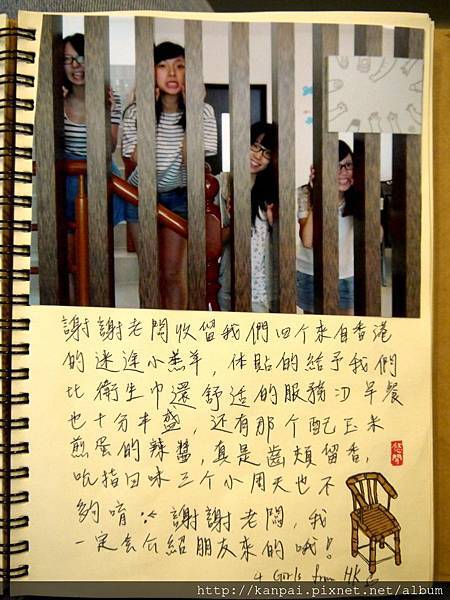 謝謝老闆收留我們四个來自香港
的迷途小羔羊，体貼的給予我們
比衛生巾還舒适的服務:D 早餐
也十分丰盛，还有那个配玉米
煎蛋的辣醬，真是齒頰留香，
吮指回味三个小周天也不
夠唷 謝謝老闆，我
一定会介紹朋友來的哦！
4 Girls from HK
http://kanpai.pixnet.net/album